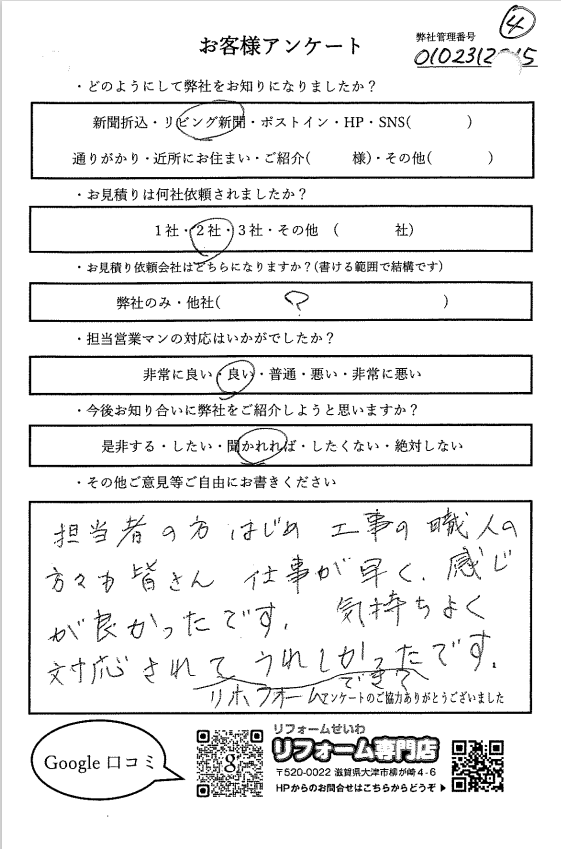 ④
お客様アンケート
弊社管理番号
・どのようにして弊社をお知りになりましたか？
新聞折込・リビング新聞・ポストイン・HP・SNS(　　　　)
通りがかり・近所にお住まい・ご紹介(　　　様)・その他(　　　　)
・お見積りは何社依頼されましたか？
１社・２社・３社・その他　(　　　　社)
・お見積り依頼会社はどちらになりますか？(書ける範囲で結構です)
弊社のみ・他社(　　　？　　　)
・担当営業マンの対応はいかがでしたか？
非常に良い・良い・普通・悪い・非常に悪い
・今後お知り合いに弊社をご紹介しようと思いますか？
是非する・したい・聞かれれば・したくない・絶対しない
・その他ご意見等ご自由にお書きください
担当者の方はじめ 工事の職人の
方々も皆さん 仕事が早く、感じ
が良かったです。気持ちよく
対応されて うれしかったです。
リホフォームできて
アンケートのご協力ありがとうございました
Google 口コミ
g
リフォームせいわ
リフォーム専門店
〒520-0022 滋賀県大津市柳が崎4-6
HPからのお問合せはこちらからどうぞ▶